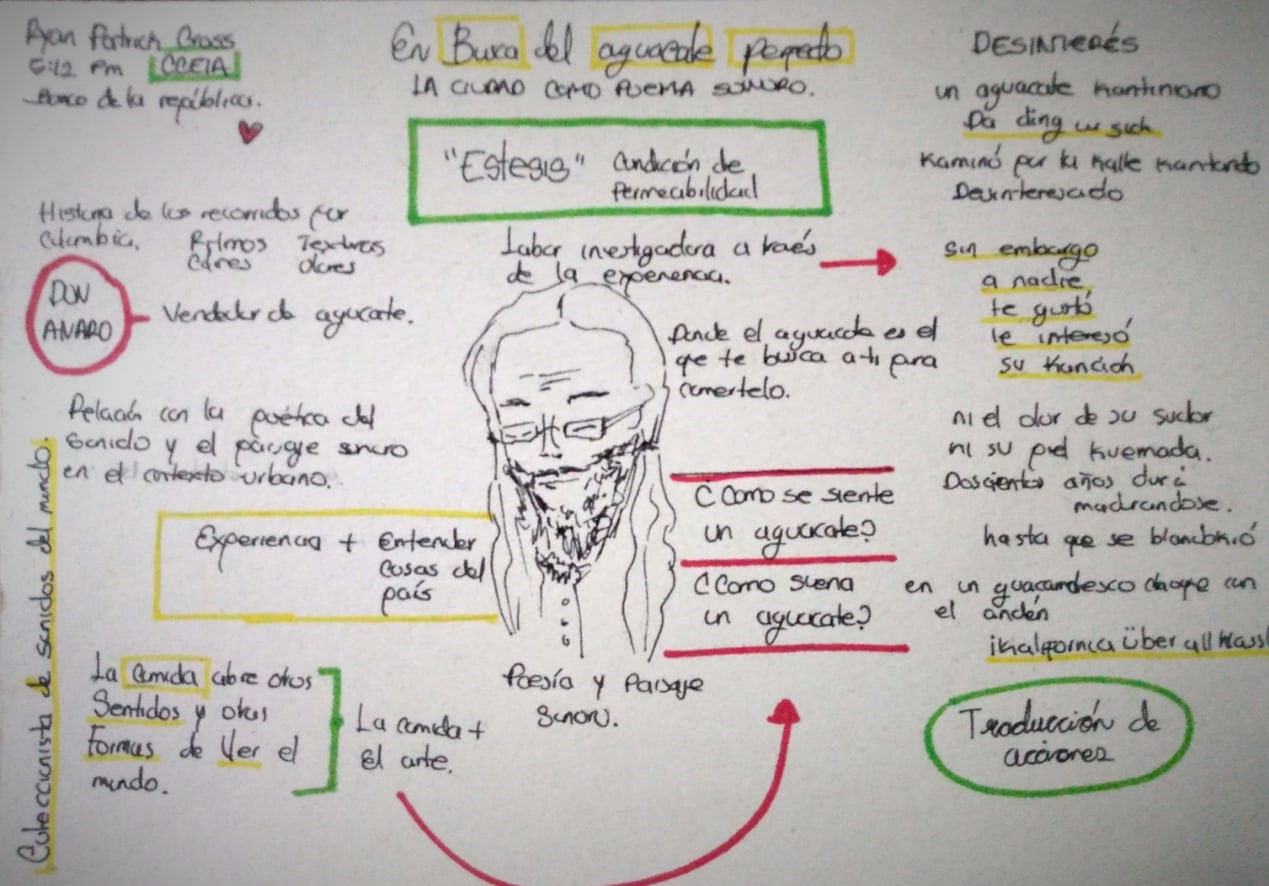 Ryan Patrick Gross
5:12 pm CCETA
Banco de la república.
En Busca del aguacate perfecto
LA CIUDAD COMO POEMA SONORO.
"Estesis" Condición de
Permeabilidad
Historia de los recorridos por
Colombia. Ritmos Texturas
Colores olores
DON
ALVARO
Vendedor de aguacate.
Labor investigadora a través
de la experiencia.
Donde el aguacate es el
que te busca a ti para
comertelo.
Relación con la poética del
sonido y el paisaje sonoro
en el contexto urbano.
Experiencia + Entender
cosas del
país
¿Como se siente
un aguacate?
¿Como suena
un aguacate?
Coleccionista de sonidos del mundo.
La comida abre otros
Sentidos y otras
Formas de Ver el
mundo.
La comida +
El arte.
Poesía y Paisaje
Sonoro.
DESINTERÉS
un aguacate kantiniano
Da ding an sich
Kaminó por la kalle kantando
Desinteresado
sin embargo
a nadie,
le gustó
le interesó
su kanción
ni el olor de su sudor
ni su piel kuemada.
Doscientos años duró
madurandose.
hasta que se
en un choque con
el andén
¡kalifornia über all
Traducción de
acciones